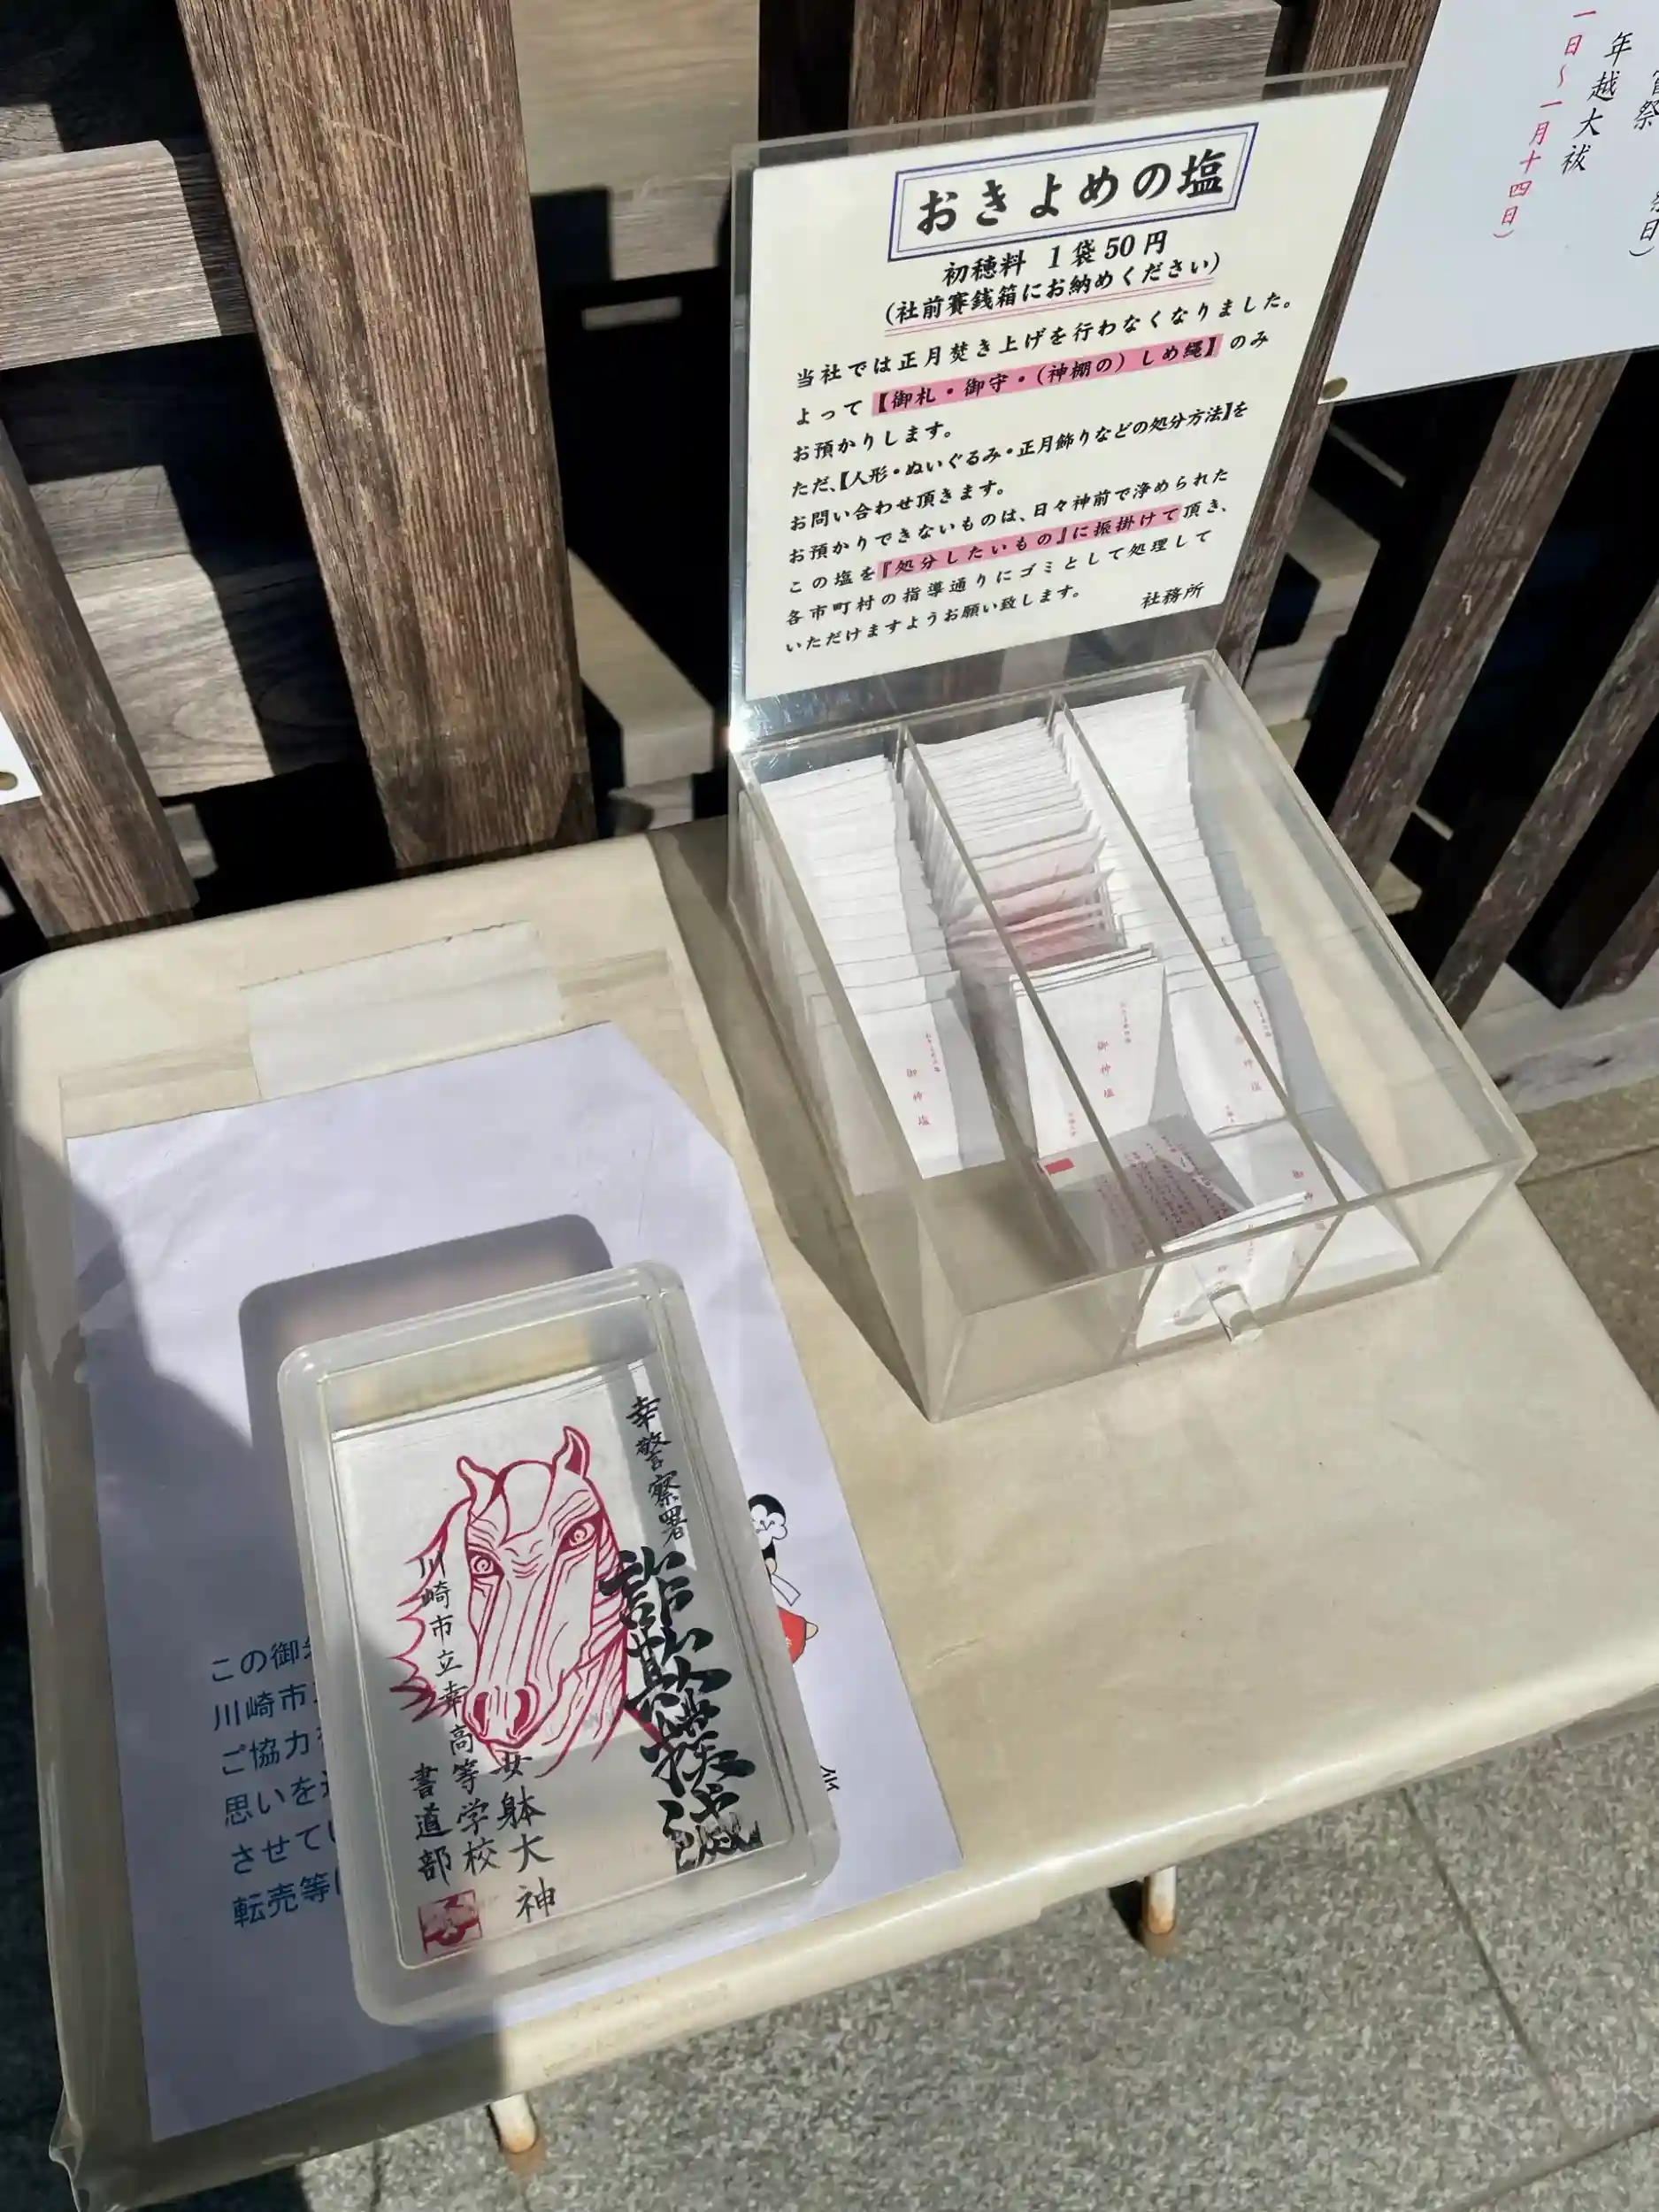 おきよめの塩
初穂料 1袋50円
(社前賽銭箱にお納めください)
当社では正月焚き上げを行わなくなりました。
よって【御札・御守・(神棚の)しめ縄】のみ
お預かりします。
ただ、【人形・ぬいぐるみ・正月飾りなどの処分方法】を
お問い合わせ頂きます。
お預かりできないものは、日々神前で浄められた
この塩を『処分したいもの』に振掛けて頂き、
各市町村の指導通りにゴミとして処理して
いただけますようお願い致します。
社務所
年越大祓
一日～一月十四日)
御神塩
御神塩
御神塩
幸警察署
詐欺撲滅
女躰大神
川崎市立幸高等学校
書道部
この御
川崎市
ご協力
思いを
させてい
転売等